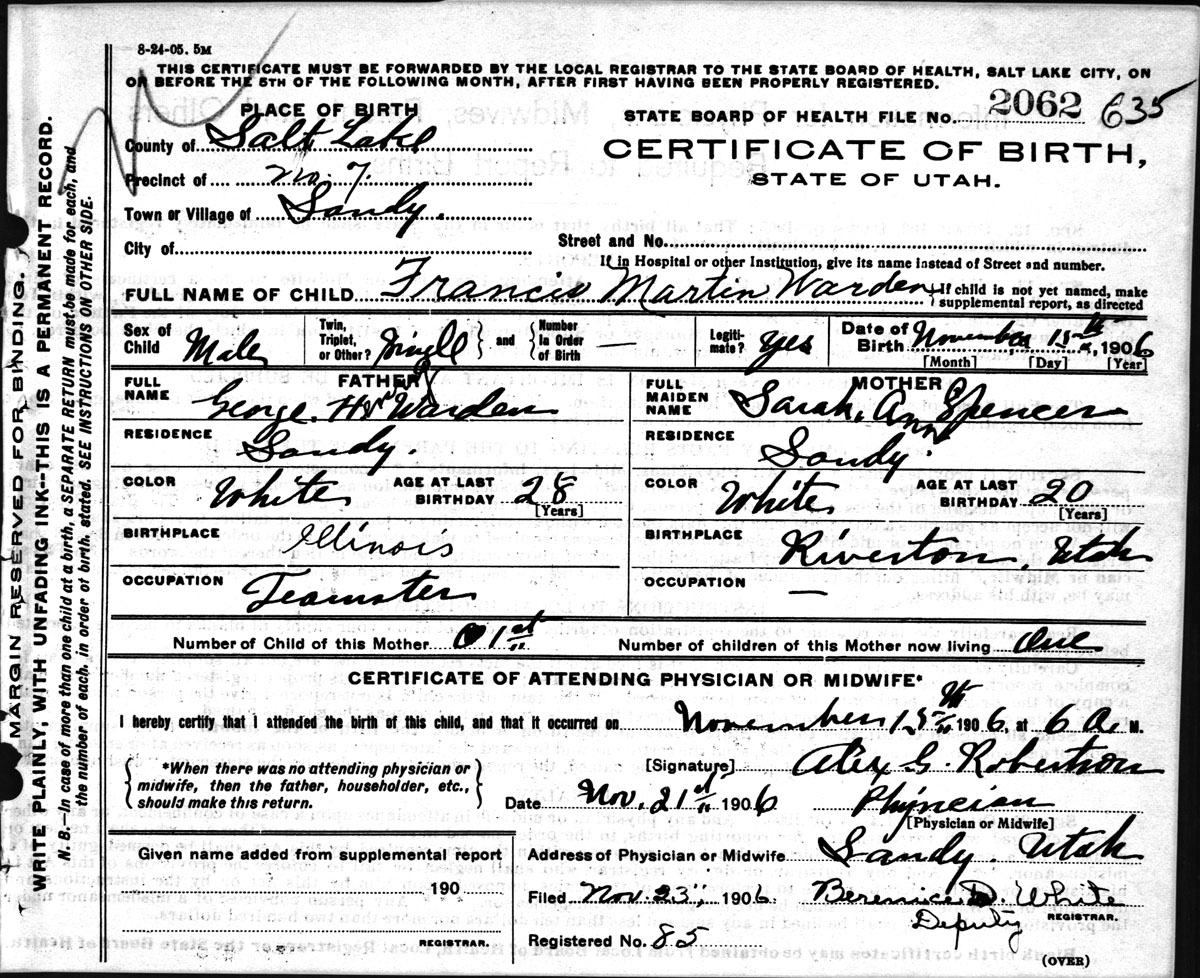 8-24-05. 5M
THIS CERTIFICATE MUST BE FORWARDED BY THE LOCAL REGISTRAR TO THE STATE BOARD OF HEALTH, SALT LAKE CITY, ON
OR BEFORE THE 5TH OF THE FOLLOWING MONTH, AFTER FIRST HAVING BEEN PROPERLY REGISTERED.
PLACE OF BIRTH
STATE BOARD OF HEALTH FILE No. 2062 635
County of Salt Lake
CERTIFICATE OF BIRTH,
Precinct of No. 7.
STATE OF UTAH.
Town or Village of Sandy.
City of
Street and No.
If in Hospital or other Institution, give its name instead of Street and number.
FULL NAME OF CHILD Francis Martin Warden { If child is not yet named, make supplemental report, as directed
Sex of Child Male
Twin, Triplet, or Other? Single } and { Number in Order of Birth —
Legitimate? Yes
Date of Birth November 15th, 1906
[Month] [Day] [Year]
FATHER
FULL NAME George. Warden
RESIDENCE Sandy.
COLOR White AGE AT LAST BIRTHDAY 28
[Years]
BIRTHPLACE Illinois
OCCUPATION Teamster
MOTHER
FULL MAIDEN NAME Sarah, Ann Spencer
RESIDENCE Sandy.
COLOR White AGE AT LAST BIRTHDAY 20
[Years]
BIRTHPLACE Riverton, Utah
OCCUPATION —
Number of Child of this Mother 1st
Number of children of this Mother now living One
CERTIFICATE OF ATTENDING PHYSICIAN OR MIDWIFE*
I hereby certify that I attended the birth of this child, and that it occurred on November 15th 1906, at 6 A. M.
{ *When there was no attending physician or midwife, then the father, householder, etc., should make this return. }
[Signature] Alex G. Robertson
Date Nov. 21st 1906 Physician
[Physician or Midwife]
Given name added from supplemental report
190
REGISTRAR.
Address of Physician or Midwife Sandy. Utah
Filed Nov. 23, 1906 Berenice D. White
Deputy REGISTRAR.
Registered No. 85
(OVER)
MARGIN RESERVED FOR BINDING.
WRITE PLAINLY, WITH UNFADING INK--THIS IS A PERMANENT RECORD.
N. B.—In case of more than one child at a birth, a SEPARATE RETURN must be made for each, and
the number of each, in order of birth, stated. SEE INSTRUCTIONS ON OTHER SIDE.